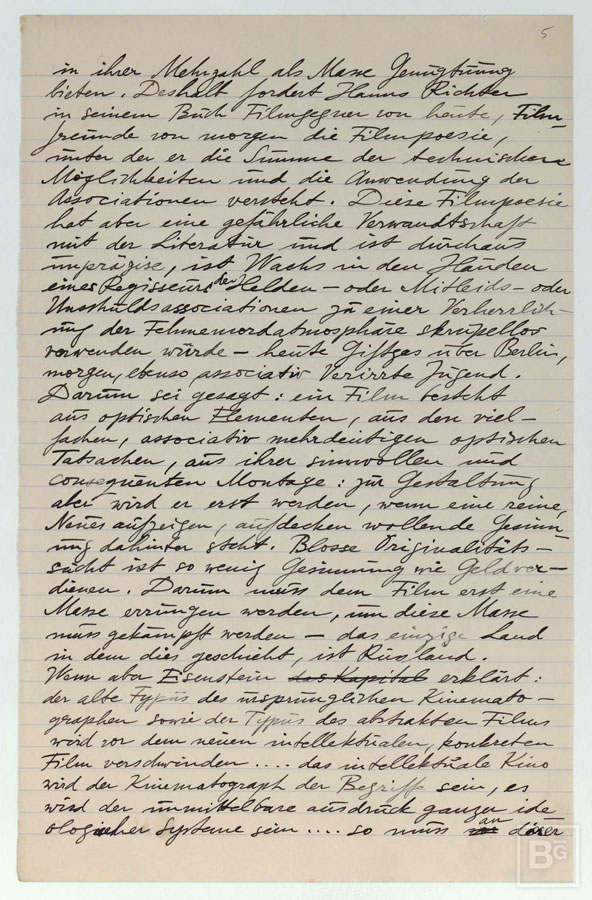 5
in ihrer Mehrzahl als Masse Genugtuung
bieten. Deshalb fordert Hanns Richter
in seinem Buch Filmgegner von heute, Film-
freunde von morgen die Filmpoesie,
unter der er die Summe der technischen
Möglichkeiten und die Anwendung der
Associationen versteht. Diese Filmpoesie
hat aber eine gefährliche Verwandtschaft
mit der Literatur und ist durchaus
unpräzise, ist Wachs in den Händen
eines Regisseurs, der Helden- oder Mitleids- oder
Unschuldsassociationen zu einer Verherrlich-
ung der Fehmemordatmosphäre skrupellos
verwenden würde – heute Giftgas über Berlin,
morgen, ebenso associativ Verirrte Jugend.
Darum sei gesagt: ein Film besteht
aus optischen Elementen, aus den viel-
fachen, associativ mehrdeutigen optischen
Tatsachen, aus ihrer sinnvollen und
consequenten Montage: zur Gestaltung
aber wird er erst werden, wenn eine reine,
Neues aufzeigen, aufdecken wollende Gesinn-
ung dahinter steht. Blosse Originalitäts-
sucht ist so wenig Gesinnung wie Geldver-
dienen. Darum muss dem Film erst eine
Masse errungen werden, um diese Masse
muss gekämpft werden – das einzige Land
in dem dies geschieht, ist Russland.
Wenn aber Eisenstein das Kapital erklärt:
der alte Typus des ursprünglichen Kinemato-
graphen sowie der Typus des abstrakten Films
wird vor dem neuen intellektualen, konkreten
Film verschwinden .... das intellektuale Kino
wird der Kinematograph der Begriffe sein, es
wird der unmittelbare ausdruck ganzer ide
ologischer Systeme sein .... so muss an dieser
BG